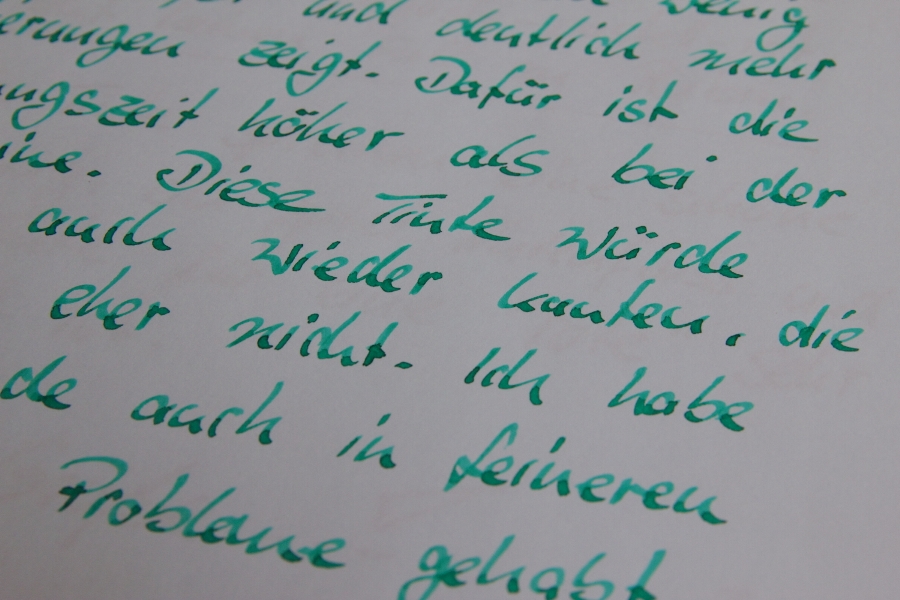 wenig
und deutlich mehr
erungen zeigt. Dafür ist die
ungszeit höher als bei der
ine. Diese Tinte würde
auch wieder kaufen, die
eher nicht. Ich habe
de auch in feineren
Probleme gehabt